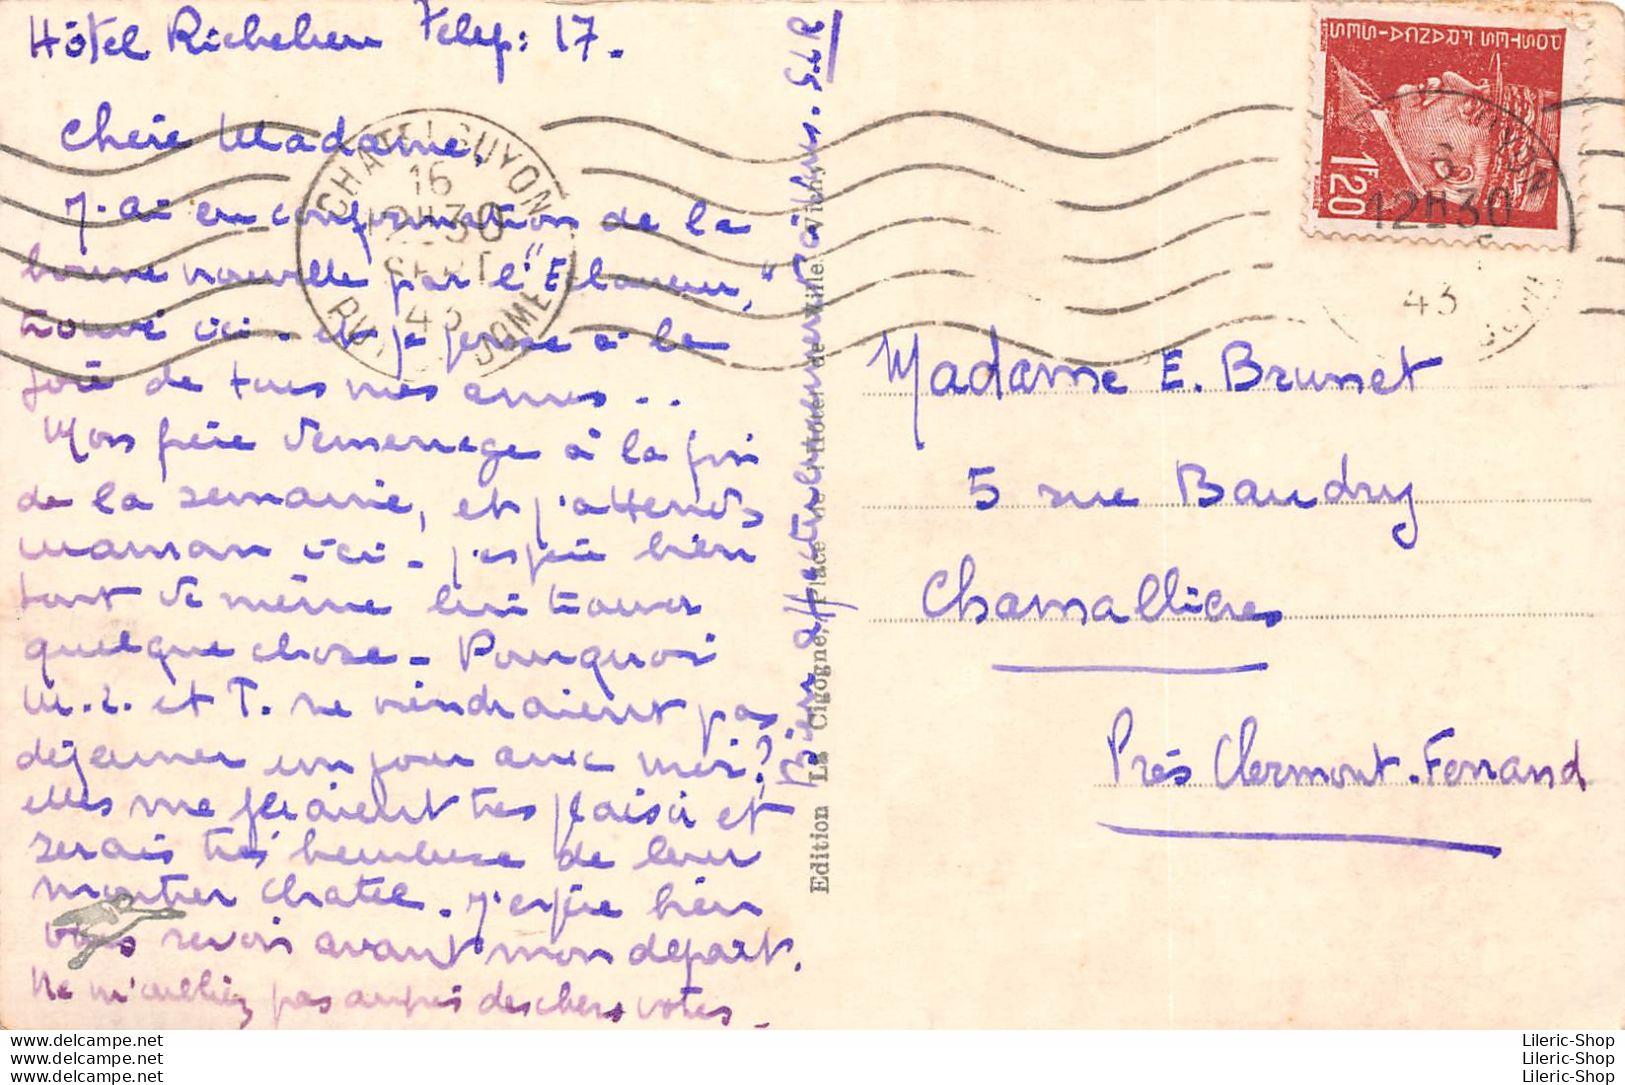 Hôtel Richelieu Telep: 17.
Chère Madame,
J'ai eu confirmation de la
bonne nouvelle par l'"Eclaireur,"
trouvé ici - et je pense à la
joie de tous mes amis..
Mon frère déménage à la fin
de la semaine, et j'attends
maman ici - j'espère bien
tout de même lui trouver
quelque chose - Pourquoi
M.L. et T. ne viendraient pas
déjeuner un jour avec moi?
elles me feraient très plaisir et
serais très heureuse de leur
montrer Chatel. J'espère bien
vous revoir avant mon départ.
Ne m'oubliez pas auprès des chers votres -
Bien affectueusement à tous.
Edition La Cigogne, Place de l'Hôtel de Ville, Vichy
CHATELGUYON
16
12H30
SEPT
43
PUY DOME
POSTES FRANÇAISES
1F20
GUYON
12H30
43
DOME
Madame E. Brunet
5 rue Baudry
Chamallières
Près Clermont-Ferrand
www.delcampe.net
www.delcampe.net
www.delcampe.net
Lileric-Shop
Lileric-Shop
Lileric-Shop